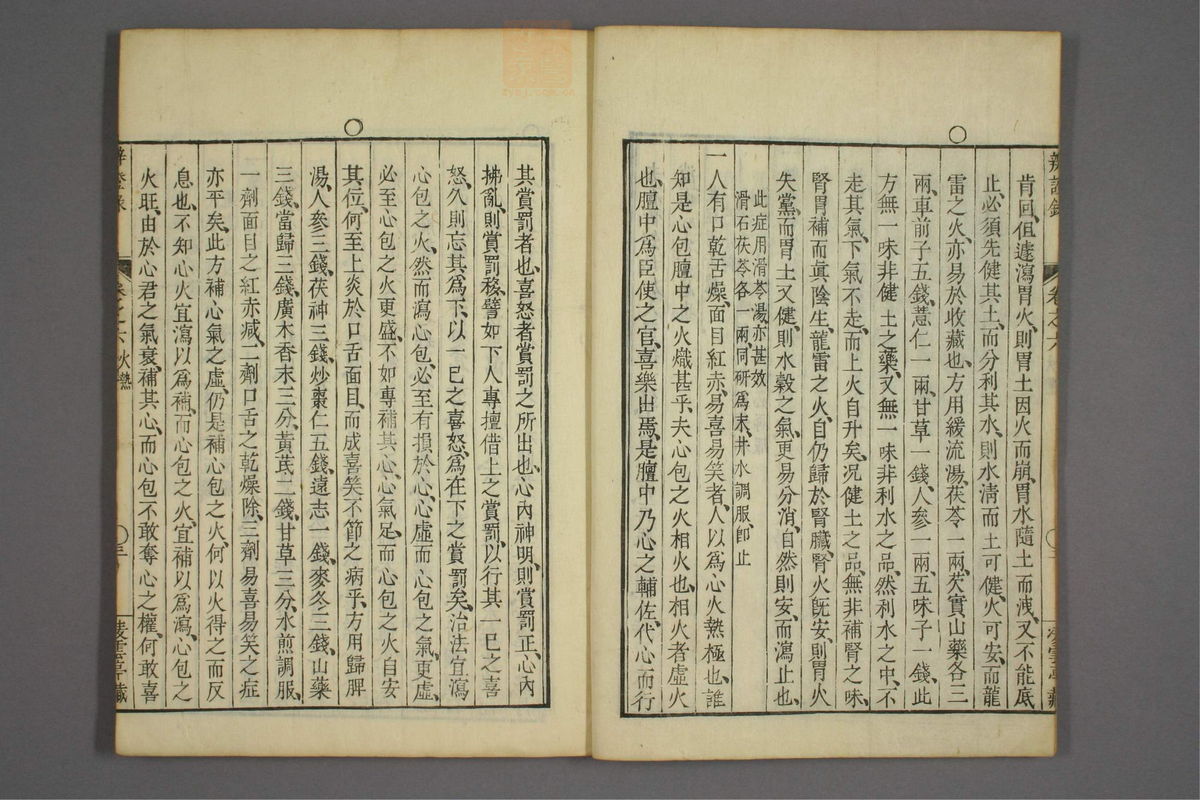 辨證錄 卷之六
肯回但遽瀉胃火則胃土因火而崩胃水隨土而洩又不能底
止必須先健其土而分利其水則水清而土可健火可安而龍
雷之火亦易於收藏也方用緩流湯茯苓一兩芡實山藥各三
兩車前子五錢薏仁一兩甘草一錢人參一兩五味子一錢此
方無一味非健土之藥又無一味非利水之品然利水之中不
走其氣下氣不走而上火自升矣况健土之品無非補腎之味
腎胃補而眞陰生龍雷之火自仍歸於腎臟腎火旣安則胃火
失黨而胃土又健則水穀之氣更易分消自然則安而瀉止也
此症用滑苓湯亦甚效
滑石茯苓各一兩同研爲末井水調服卽止
一人有口乾舌燥面目紅赤易喜易笑者人以爲心火熱極也誰
知是心包膻中之火熾甚乎夫心包之火相火也相火者虛火
也膻中爲臣使之官喜樂出焉是膻中乃心之輔佐代心而行
其賞罰者也喜怒者賞罰之所出也心內神明則賞罰正心內
拂亂則賞罰移譬如下人專擅借上之賞罰以行其一己之喜
怒久則忘其爲下以一己之喜怒爲在下之賞罰矣治法宜瀉
心包之火然而瀉心包必至有損於心心虛而心包之氣更虛
必至心包之火更盛不如專補其心心氣足而心包之火自安
其位何至上炎於口舌面目而成喜笑不節之病乎方用歸脾
湯人參三錢茯神三錢炒棗仁五錢遠志一錢麥冬三錢山藥
三錢當歸三錢廣木香末三分黃芪二錢甘草三分水煎調服
一劑面目之紅赤減二劑口舌之乾燥除三劑易喜易笑之症
亦平矣此方補心氣之虛仍是補心包之火何以火得之而反
息也不知心火宜瀉以爲補而心包之火宜補以爲瀉心包之
火旺由於心君之氣衰補其心而心包不敢奪心之權何敢喜
卷之六 火熱